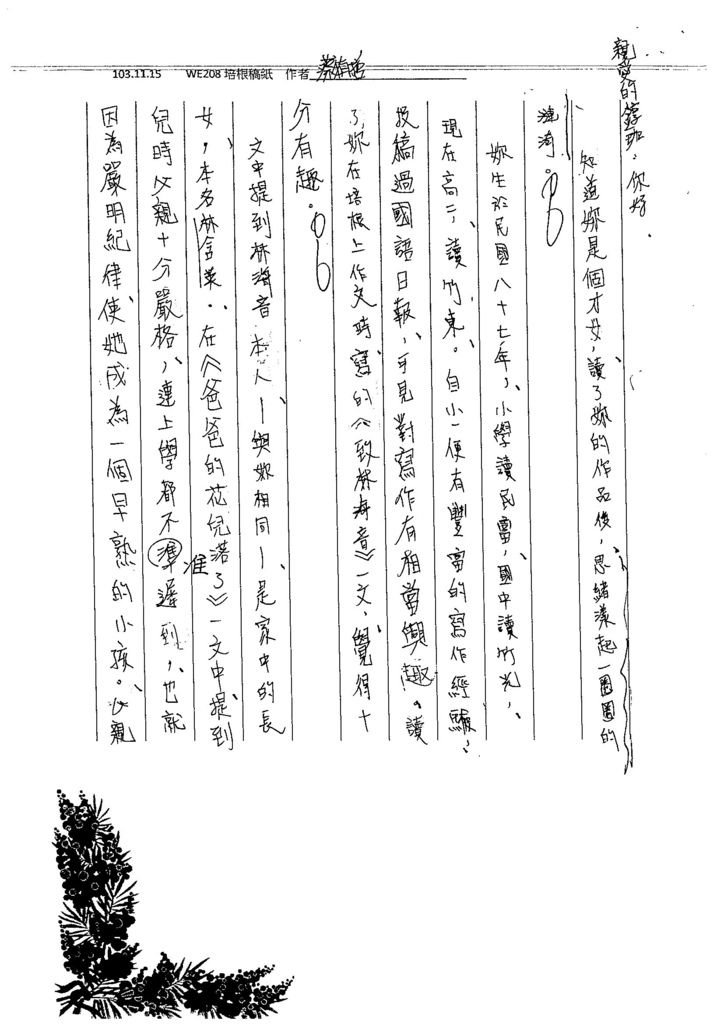 103.11.15 WE208 培根稿紙 作者
親愛的 你好.
知道妳是個才女,讀了妳的作品後,思緒漾起一圈圈的
漣漪。
妳生於民國八十七年,小學讀民富,國中讀竹光,
現在高二,讀竹東。自小便有豐富的寫作經驗,
投稿過國語日報,可見對寫作有相當興趣。讀
了妳在培根上作文時寫的《致林海音》一文,覺得十
分有趣。
文中提到林海音本人—與妳相同—是家中的長
女,本名林含英。在《爸爸的花兒落了》一文中提到
兒時父親十分嚴格,連上學都不準遲到,也就
准
因為嚴明紀律使她成為一個早熟的小孩。父親